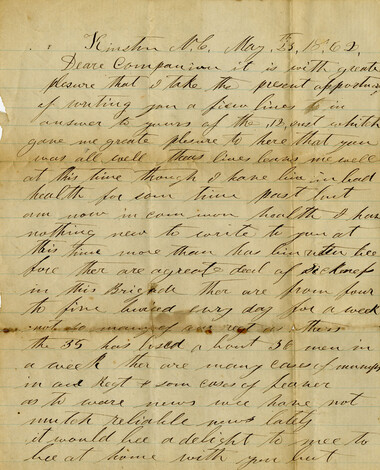 Kinston N.C. May 23, 1862,
Deare Companion it is with greate
plesure that I take the present
of writing you a fiew lines to in
answer to yours of the 12, enst whitch
gave me greate plesure to here that you
was all well thees lines leave me well
at this time though I have bin in bad
health for som time past but
am now in common health I have
nothing new to write to you at
this time more than has bin riten bee
fore ther are agreate deal of sickness
in this Brigade ther are from four
to five buried evry day for a week
not so many of our regt as others
the 35 has losed about 36 men in
a week ther are many cases of mumps
in our Regt & som cases of
as to ware news wee have not
mutch reliable news lately
it would bee a delight to mee to
bee at home with you but